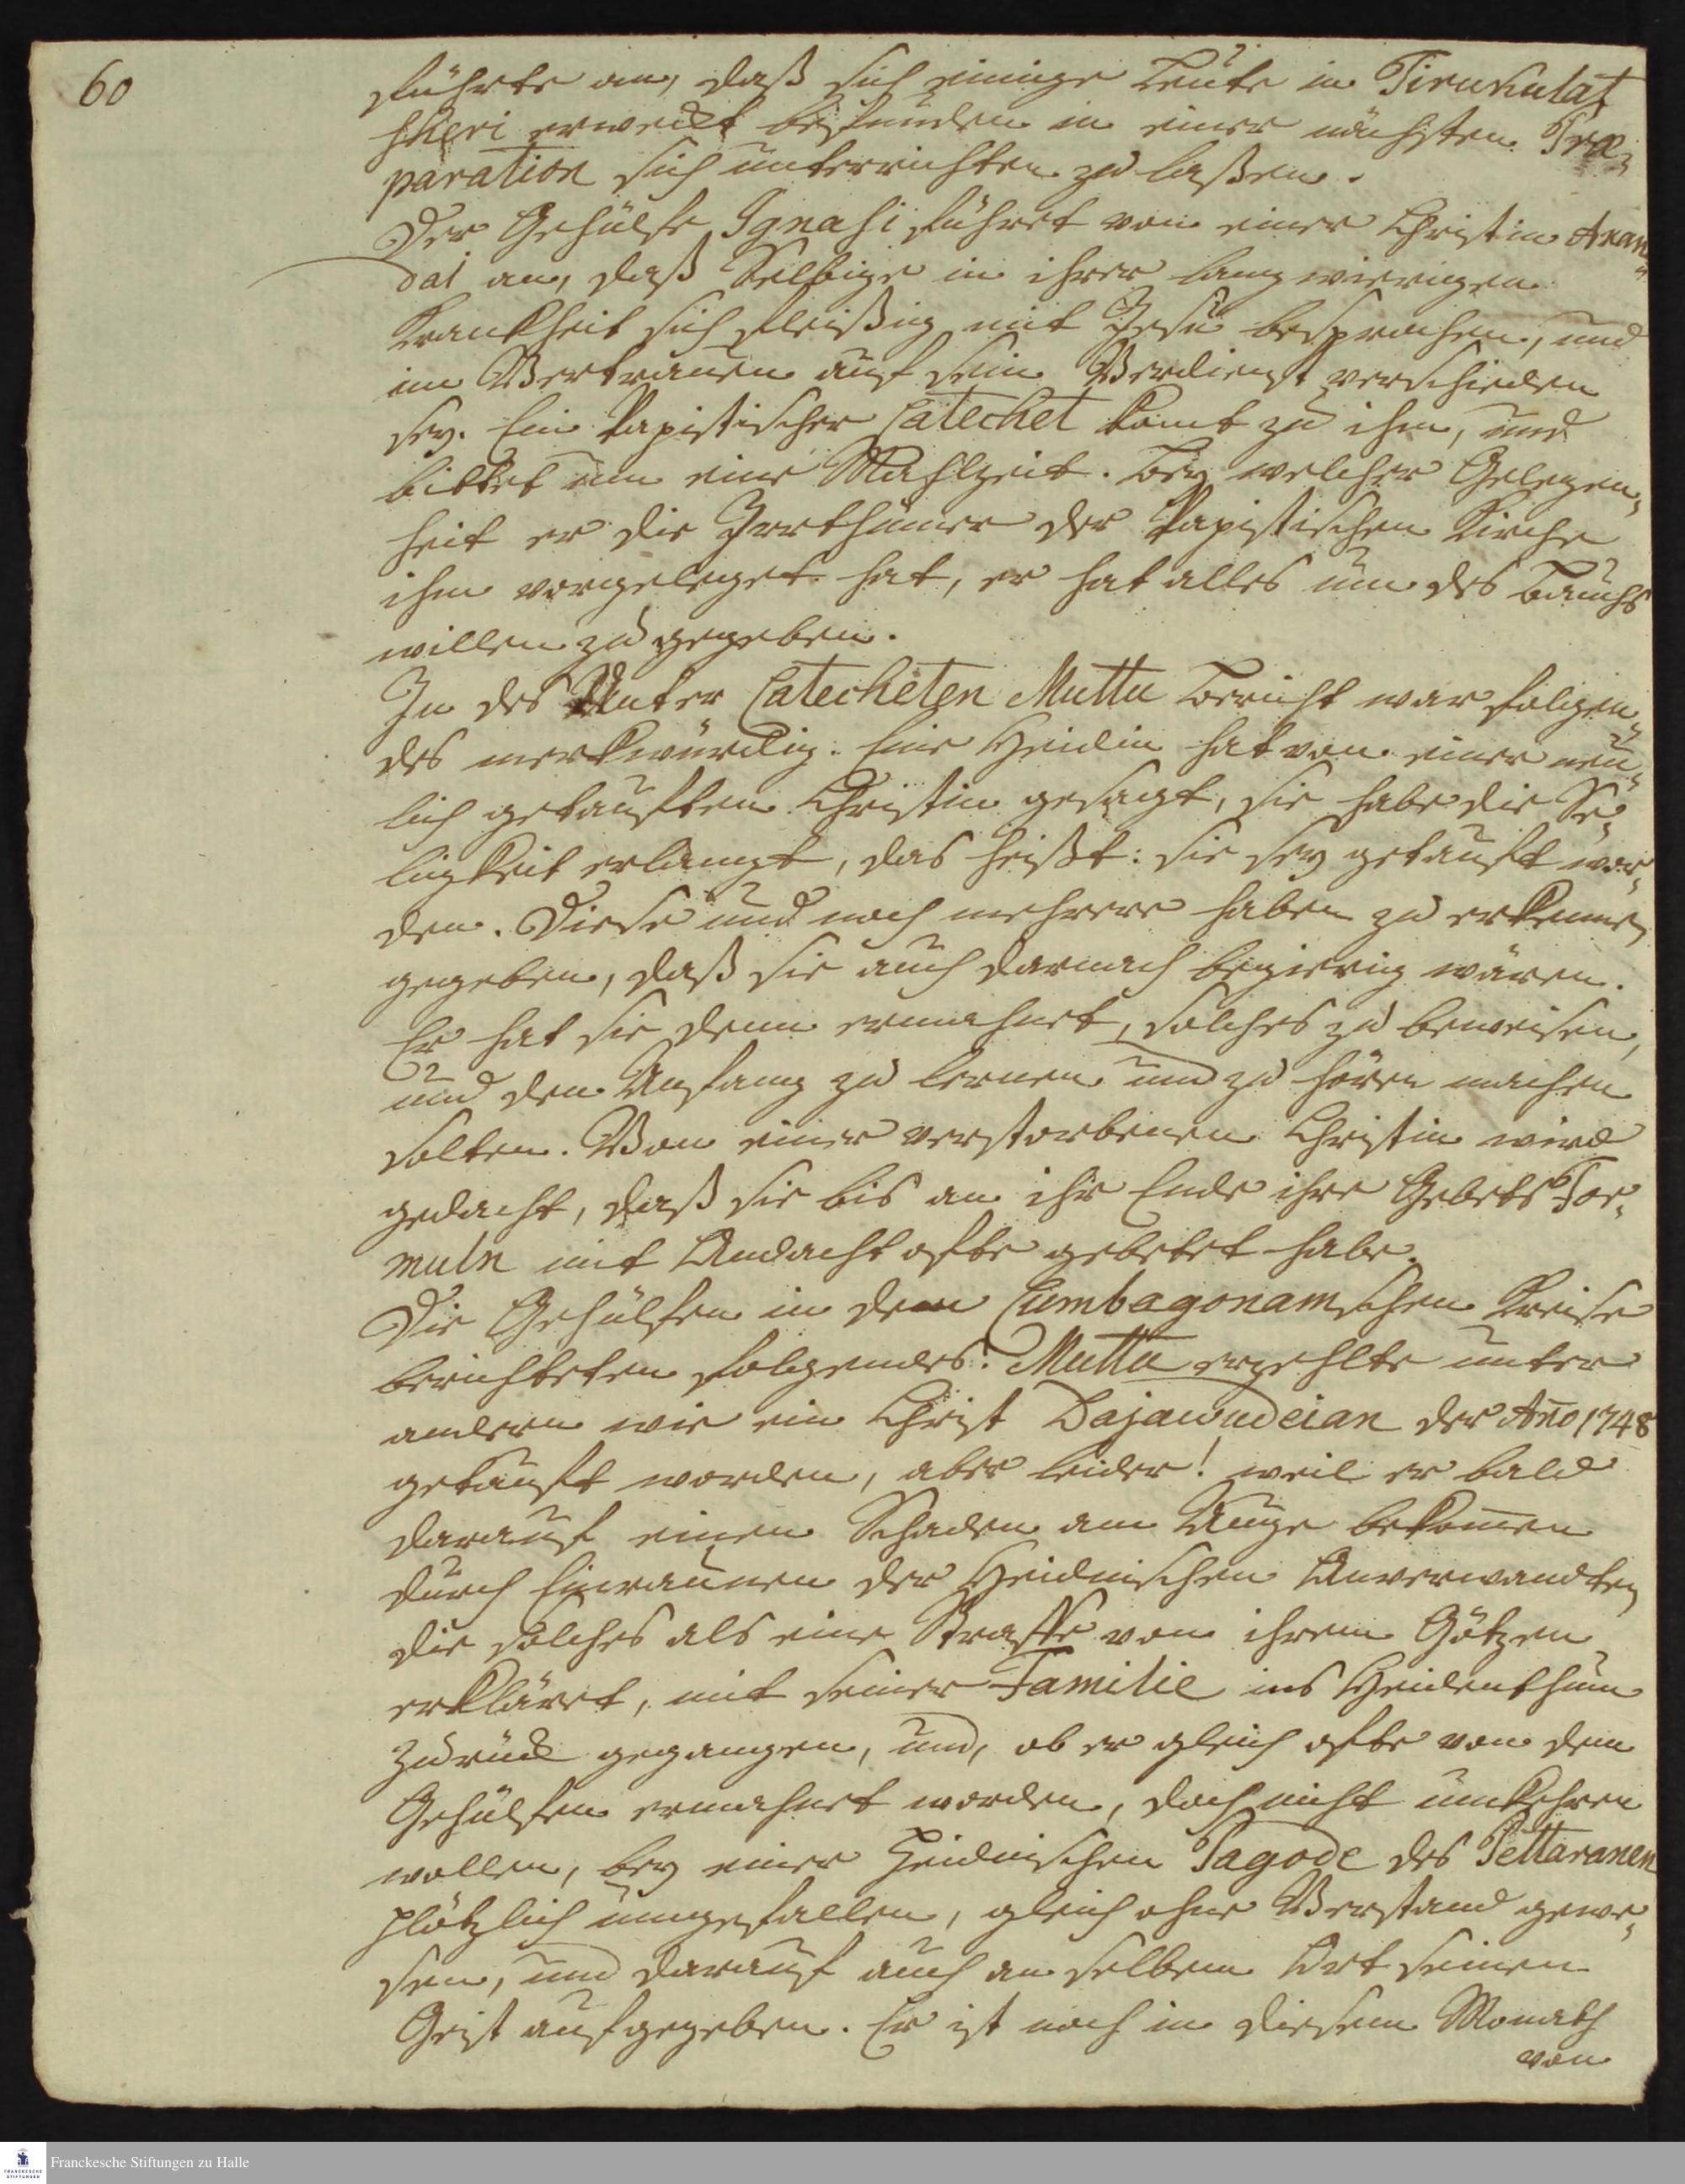 60
führte an, daß sich einige Leute in Tirukulat
sheri erweckt befunden in einer nächsten Præ-
paration sich unterrichten zu laßen.
Der Gehülfe Ignasi führet von einer Christin Anan-
dai an, daß Selbige in ihrer langwierigen
Krankheit sich fleißig mit Jesu besprochen, und
im Vertrauen auf sein Verdienst verschieden
sey. Ein Papistischer Catechet komt zu ihm, und
bittet um eine Mahlzeit. Bey welcher Gelegen-
heit er die Irrthümer der Papistischen Kirche
ihm vorgeleget hat, er hat alles um des Bauchs
willen zu gegeben.
In des Unter Catecheten Muttu Bericht war folgen-
des merkwürdig. Eine Heidin hat von einer neu-
lich getauften Christin gesagt, sie habe die Se-
ligkeit erlangt, das heißt: sie sey getauft wor-
den. Diese und noch mehrere haben zu erkennen
gegeben, daß sie auch darnach begierig wären.
Er hat sie denn ermahnet, solches zu beweisen,
und den Anfang zu lernen und zu hören machen
solten. Von einer verstorbenen Christin wird
gedacht, daß sie bis an ihr Ende ihre Gebets For-
muln mit Andacht ofte gebetet habe.
Die Gehülfen in dem Cumbagonamschen Kreise
berichteten folgendes: Muttu erzehlte unter
andern wie ein Christ Dajawudeian der Año 1748
getauft worden, aber leider! weil er bald
darauf einen Schaden am Auge bekom̄en
durch Einraunen der Heidnischen Anverwandten
die solches als eine Straffe von ihrem Götzen
erkläret, mit seiner Familie ins Heidenthum
zurück gegangen, und, ob er gleich ofte von dem
Gehülfen ermahnet worden, doch nicht umkehren
wollen, bey einer Heidnischen Pagode des Pettaranen
plötzlich umgefallen, gleich ohne Verstand gewe-
sen, und darauf auch an selbem Ort seinen
Geist aufgegeben. Er ist noch in diesem Monath
von
Franckesche Stiftungen zu Halle
FRANCKESCHE STIFTUNGEN